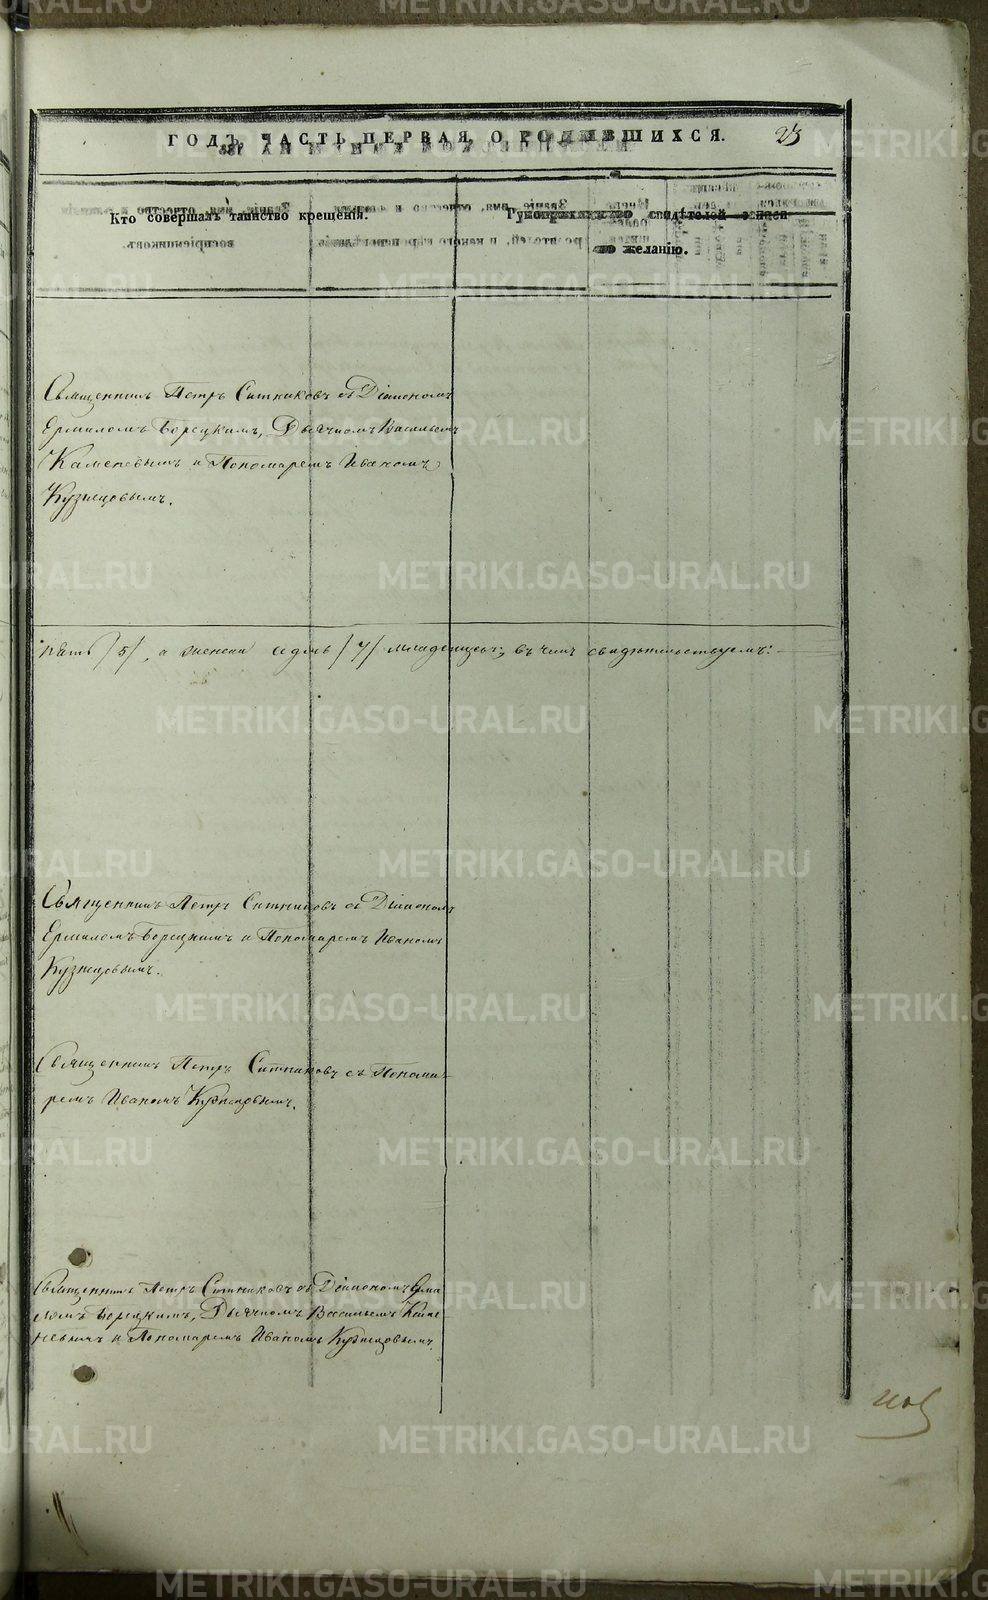 ГОДЪ, ЧАСТЬ ПЕРВАЯ, О РОДИВШИХСЯ.
23
Кто совершалъ таинство крещенія.
Рукоприкладство свидѣтелей записи
по желанію.
Священникъ Петръ Ситниковъ съ Діакономъ
Ермиломъ Борецкимъ, Дьячкомъ Васильемъ
Каменевымъ и Пономаремъ Иваномъ
Кузнецовымъ.
пять /5/, а женска седмь /7/ младенцевъ; въ чемъ свидѣтельствуемъ:
Священникъ Петръ Ситниковъ съ Діакономъ
Ермиломъ Борецкимъ и Пономаремъ Иваномъ
Кузнецовымъ.
Священникъ Петръ Ситниковъ съ Понома-
ремъ Иваномъ Кузнецовымъ.
Священникъ Петръ Ситниковъ съ Діакономъ Ерми
ломъ Борецкимъ, Дьячкомъ Васильемъ Каме-
невымъ и Пономаремъ Иваномъ Кузнецовымъ.
METRIKI.GASO-URAL.RU